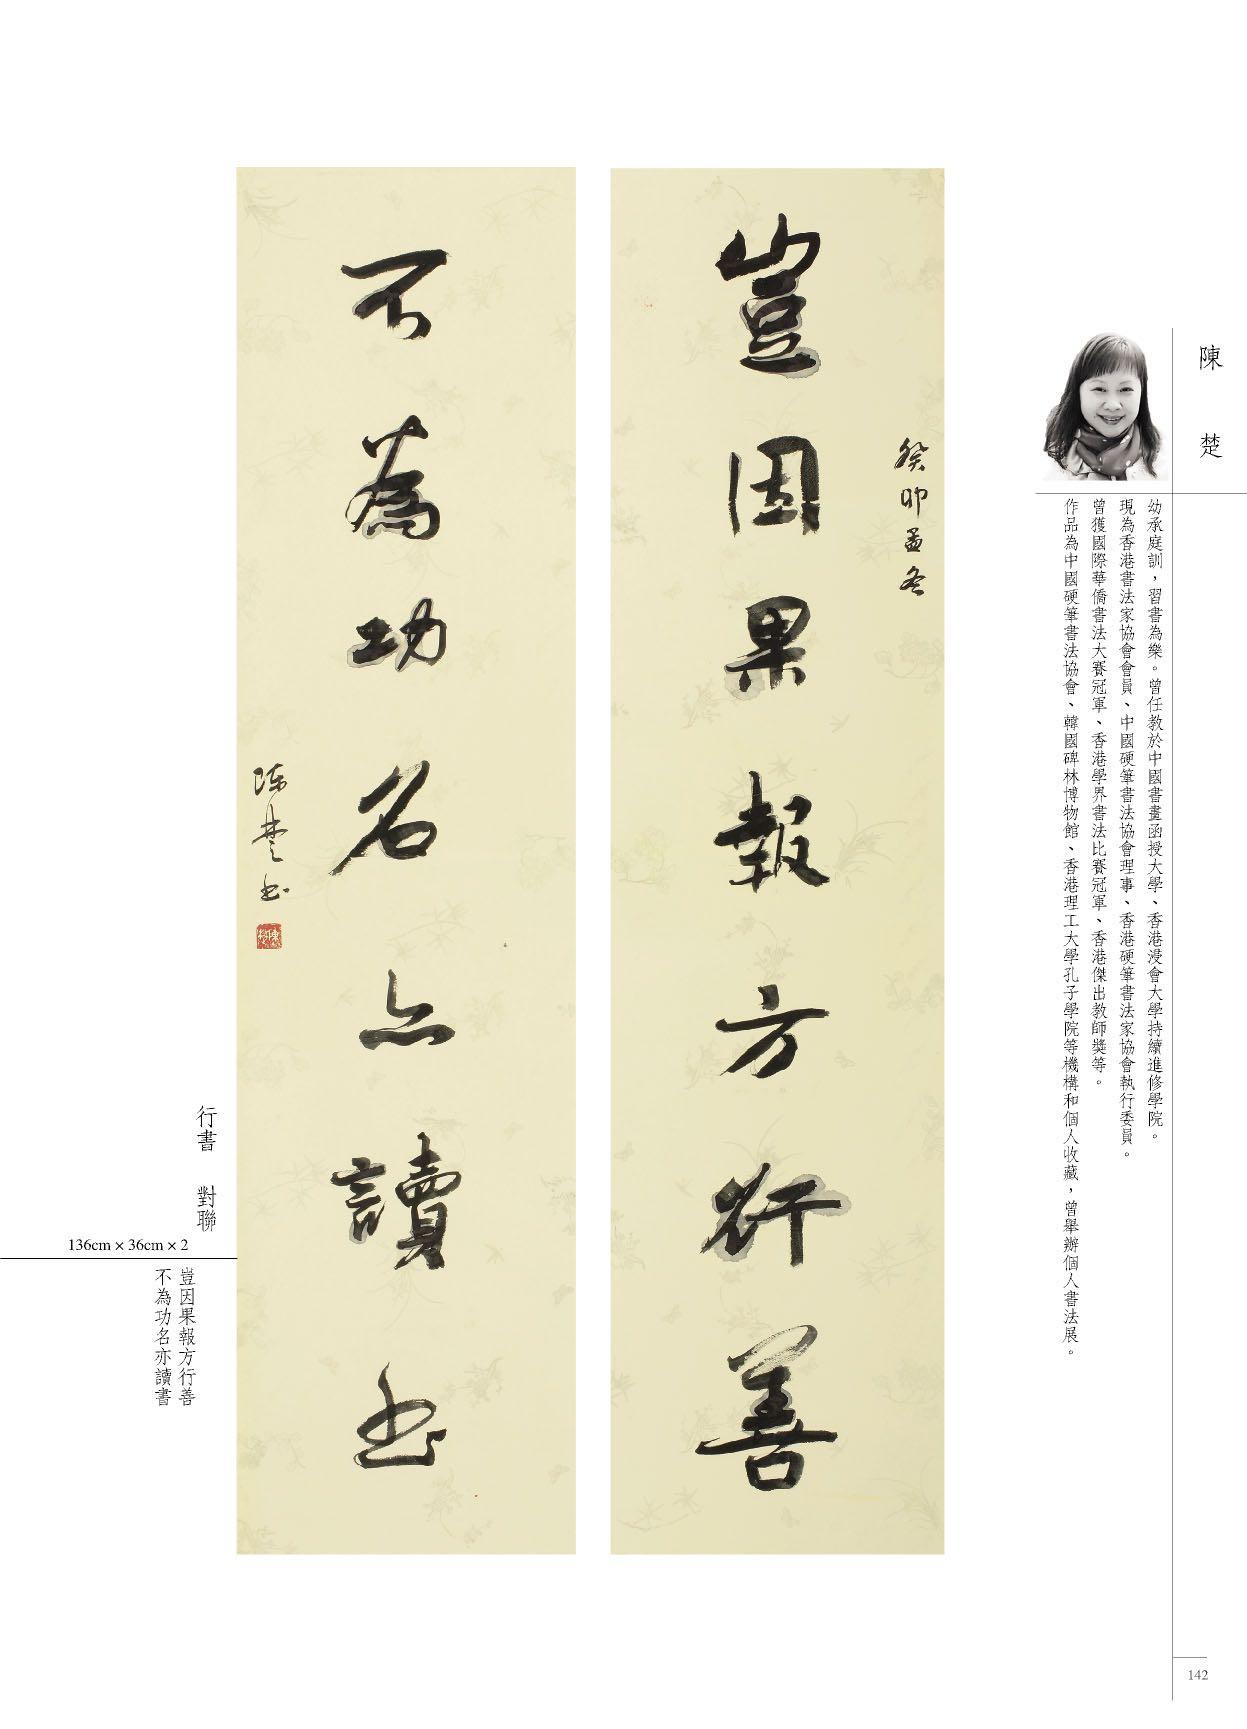 陳楚
幼承庭訓，習書為樂。曾任教於中國書畫函授大學、香港浸會大學持續進修學院。
現為香港書法家協會會員、中國硬筆書法協會理事、香港硬筆書法家協會執行委員。
曾獲國際華僑書法大賽冠軍、香港學界書法比賽冠軍、香港傑出教師獎等。
作品為中國硬筆書法協會、韓國碑林博物館、香港理工大學孔子學院等機構和個人收藏，曾舉辦個人書法展。
癸卯孟冬
豈因果報方行善
不為功名亦讀书
陈楚书
行書 對聯
136cm × 36cm × 2
豈因果報方行善
不為功名亦讀書
142